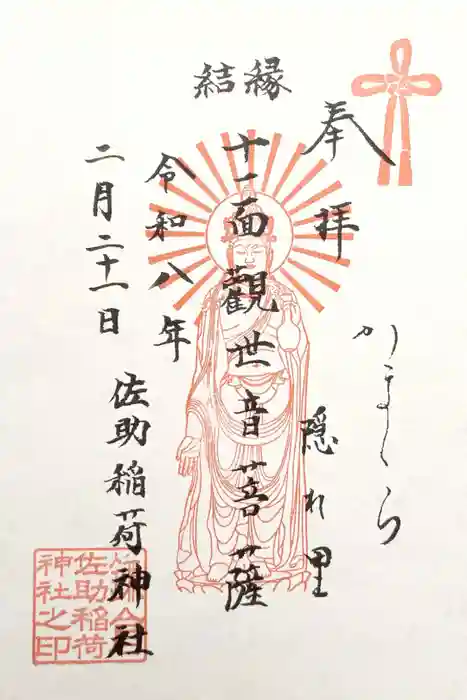 奉拝
かまくら
隠れ里
縁結
十一面觀世音菩薩
令和八年
二月二十一日
佐助稲荷神社
佐助稲荷
神社之印